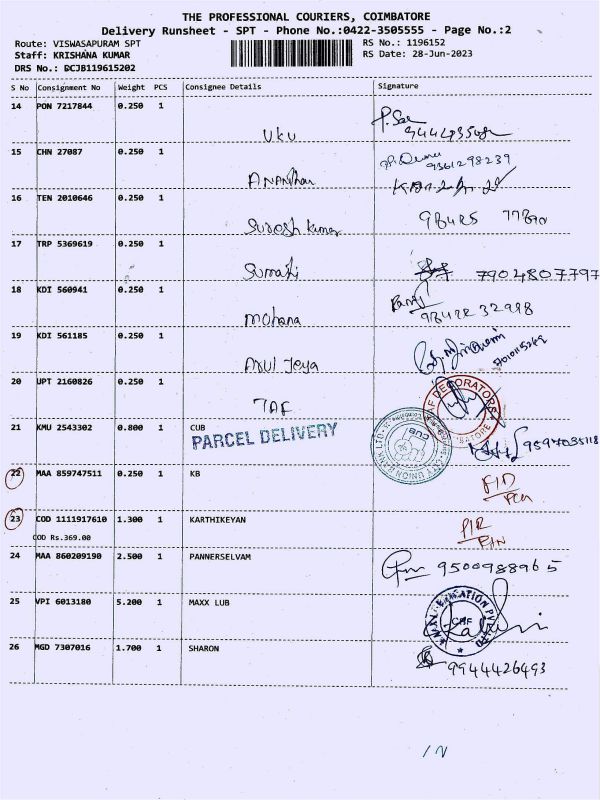 THE PROFESSIONAL COURIERS, COIMBATORE
Delivery Runsheet - SPT - Phone No.:0422-3505555 - Page No.:2
Route: VISWASAPURAM SPT
RS No.: 1196152
Staff: KRISHANA KUMAR
RS Date: 28-Jun-2023
DRS No.: DCJB119615202
S No Consignment No Weight PCS Consignee Details Signature
14 PON 7217844 0.250 1
UKU
15 CHN 27087 0.250 1
9361298239
Ananthan
16 TEN 2010646 0.250 1
Suresh Kumar
17 TRP 5369619 0.250 1
Sumathi 7904807797
18 KDI 560941 0.250 1
Mohana 98422 32998
19 KDI 561185 0.250 1
Arul Jeya
20 UPT 2160826 0.250 1
TAF
DECORATORS
21 KMU 2543302 0.800 1 CUB
PARCEL DELIVERY
CITY UNION BANK LTD
CUB
22 MAA 859747511 0.250 1 KB
23 COD 1111917610 1.300 1 KARTHIKEYAN
COD Rs.369.00
24 MAA 860209190 2.500 1 PANNERSELVAM
9500988965
25 VPI 6013180 5.200 1 MAXX LUB
26 MGD 7307016 1.700 1 SHARON
9944426493